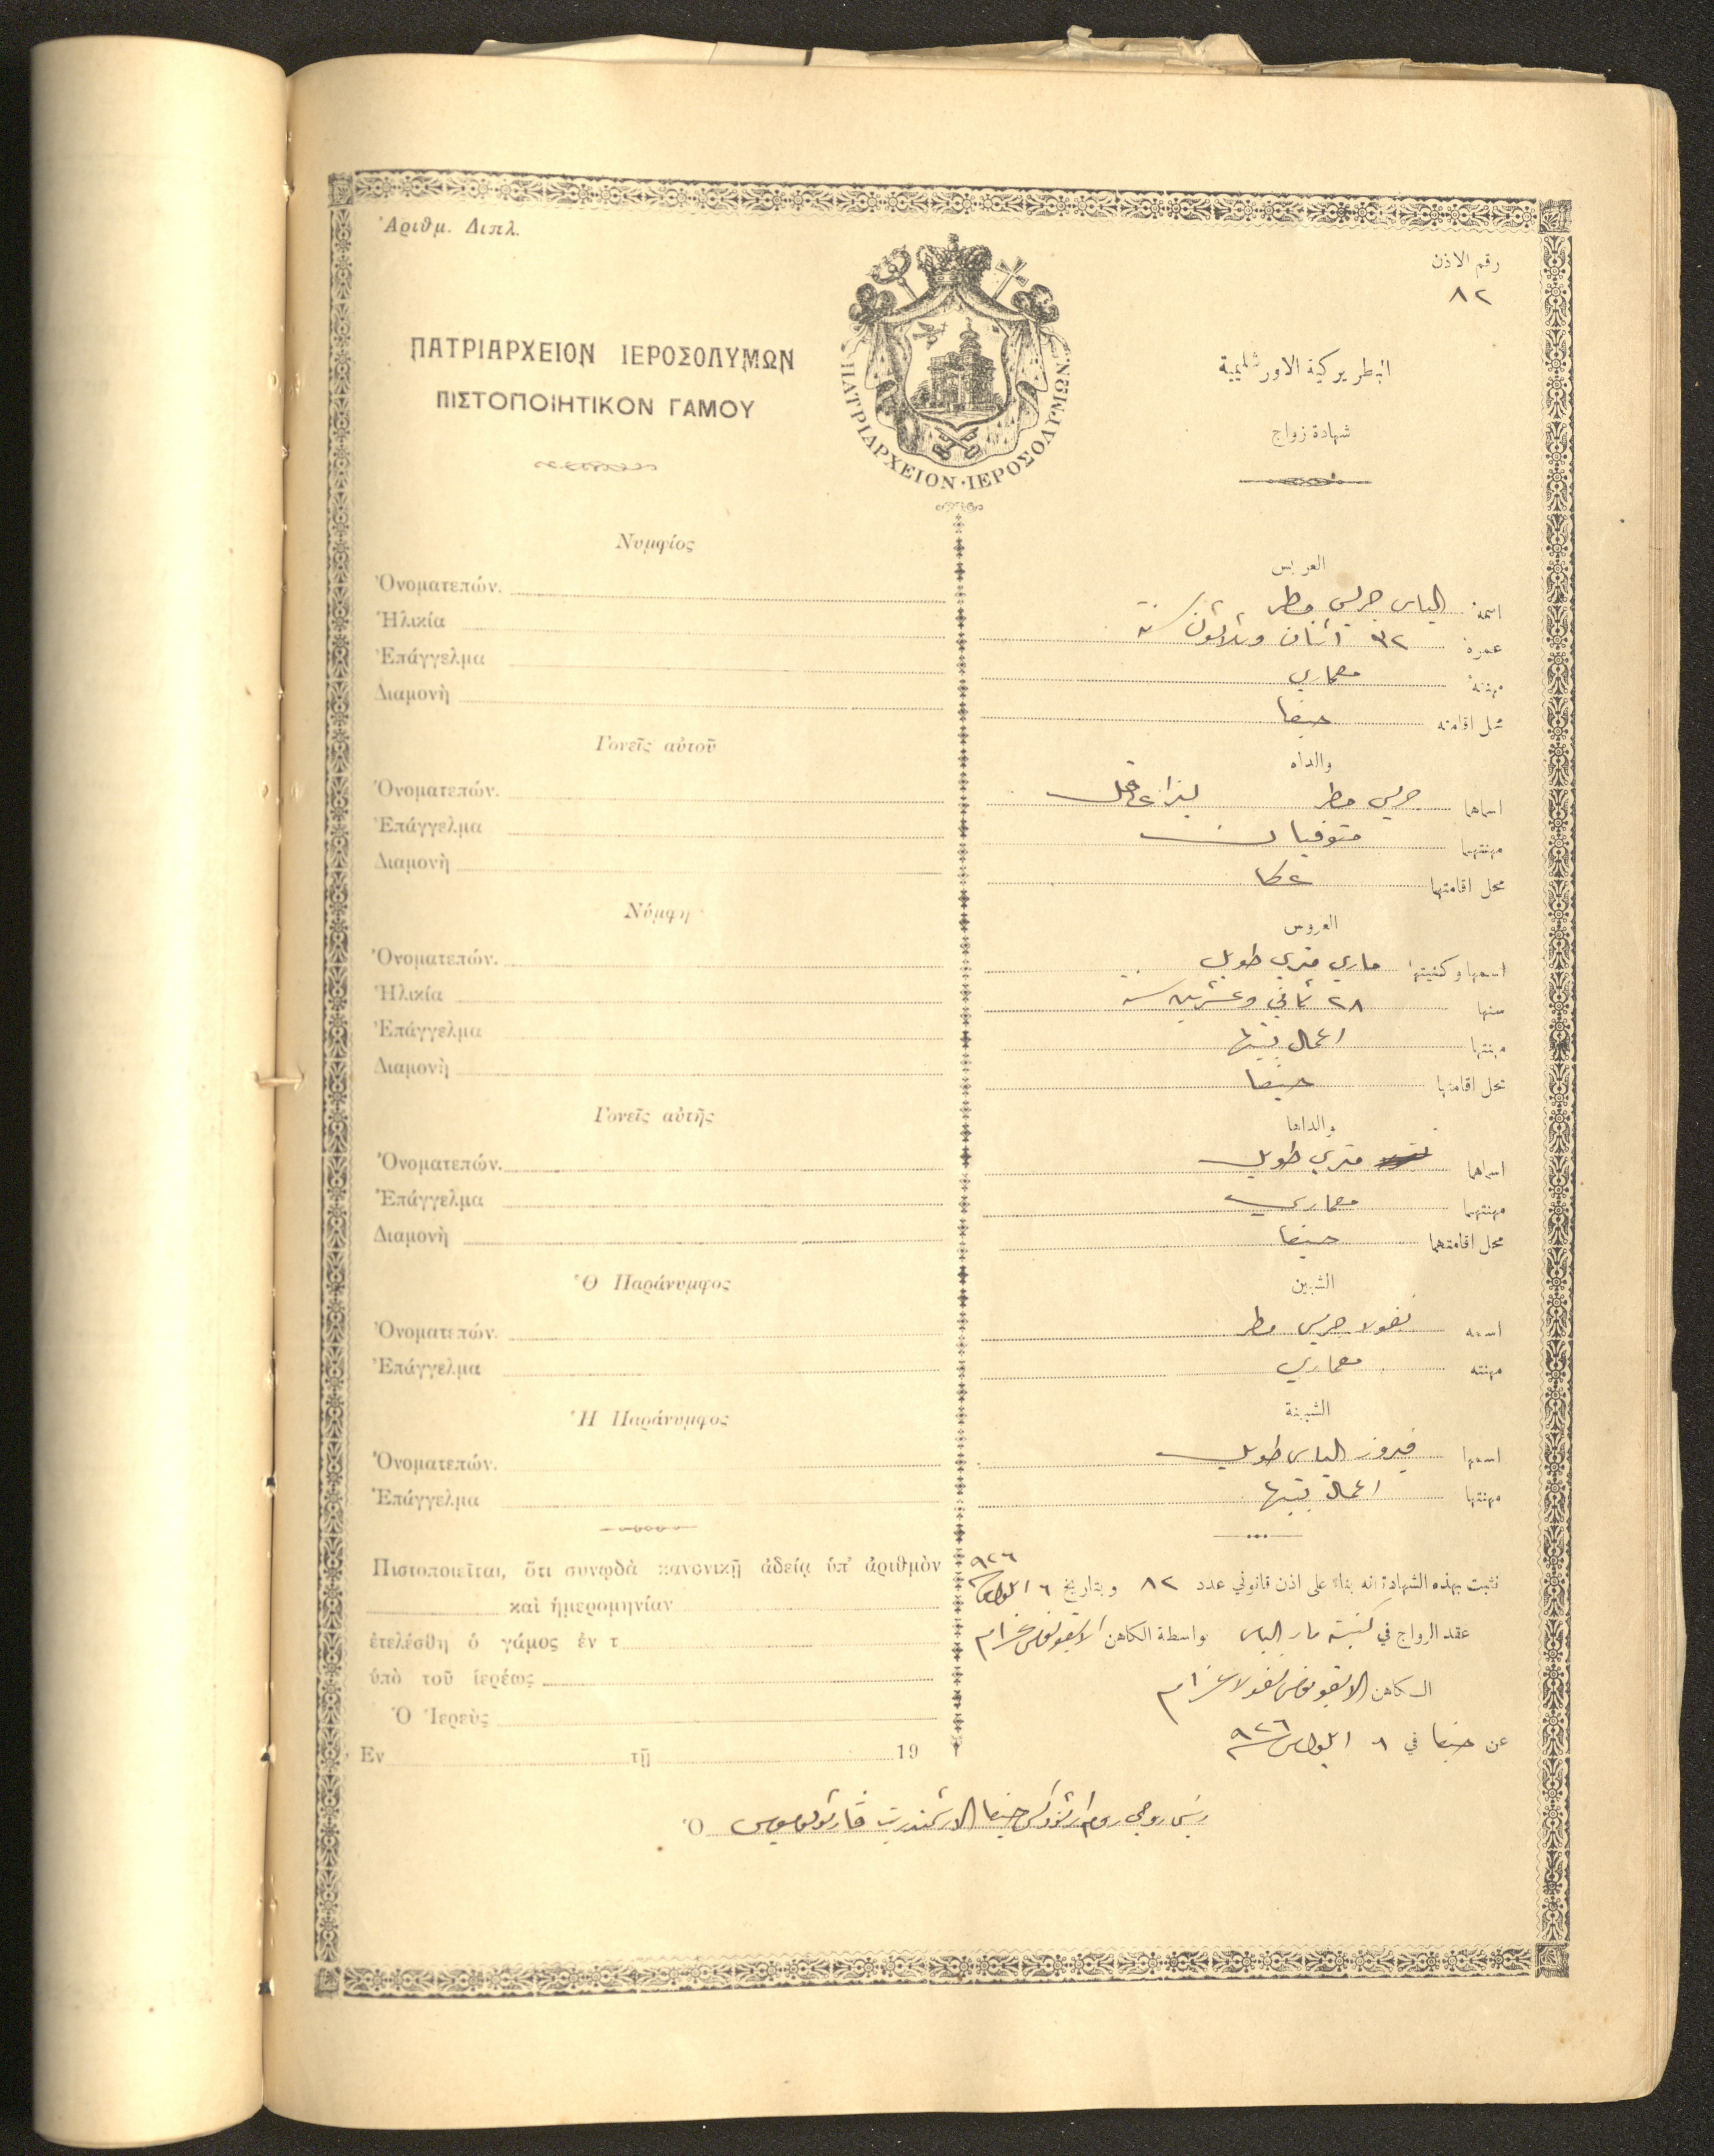 Ἀριθμ. Διπλ.
رقم الاذن
٨٢
ΠΑΤΡΙΑΡΧΕΙΟΝ ΙΕΡΟΣΟΛΥΜΩΝ
ΠΙΣΤΟΠΟΙΗΤΙΚΟΝ ΓΑΜΟΥ
ΠΑΤΡΙΑΡΧΕΙΟΝ·ΙΕΡΟΣΟΛΥΜΩΝ
البطريركية الاورشليمية
شهادة زواج
Νυμφίος
Ὀνοματεπών.
Ἡλικία
Ἐπάγγελμα
Διαμονὴ
Γονεῖς αὐτοῦ
Ὀνοματεπών.
Ἐπάγγελμα
Διαμονὴ
Νύμφη
Ὀνοματεπών.
Ἡλικία
Ἐπάγγελμα
Διαμονὴ
Γονεῖς αὐτῆς
Ὀνοματεπών.
Ἐπάγγελμα
Διαμονὴ
Ὁ Παράνυμφος
Ὀνοματεπών.
Ἐπάγγελμα
Ἡ Παράνυμφος
Ὀνοματεπών.
Ἐπάγγελμα
Πιστοποιεῖται, ὅτι συνῳδὰ κανονικῇ ἀδείᾳ ὑπ' ἀριθμὸν
καὶ ἡμερομηνίαν
ἐτελέσθη ὁ γάμος ἐν τ
ὑπὸ τοῦ ἱερέως
Ὁ Ἱερεὺς
Ἐν τῇ 19
العريس
اسمهُ الياس جريس مطر
عمرهُ ٣٢ اثنان وثلاثون سنة
مهنتهُ معماري
محل اقامته حيفا
والداه
اسماهما جريس مطر
مهنتهما متوفيان
محل اقامتهما عكا
العروس
اسمها وكنيتها ماري متري طويل
سنها ٢٨ ثماني وعشرين سنة
مهنتها اعمال بيتها
محل اقامتها حيفا
والداها
اسماهما متري طويل
مهنتهما معماري
محل اقامتهما حيفا
الشبين
اسمه نقولا جريس مطر
مهنته معماري
الشبينة
اسمها فيروز الياس طويل
مهنتها اعمال بيتها
نثبت بهذه الشهادة انه بناءً على اذن قانوني عدد ٨٢ وبتاريخ ٦ ايلول سنة ٩٢٦
عقد الزواج في كنيسة مار الياس بواسطة الكاهن الايقونومس خزام
الكاهن الايقونومس نقولا خزام
عن حيفا في ٦ ايلول سنة ٩٢٦
Ὁ رئيس روحي روم ارثوذكس حيفا الارشمندريت